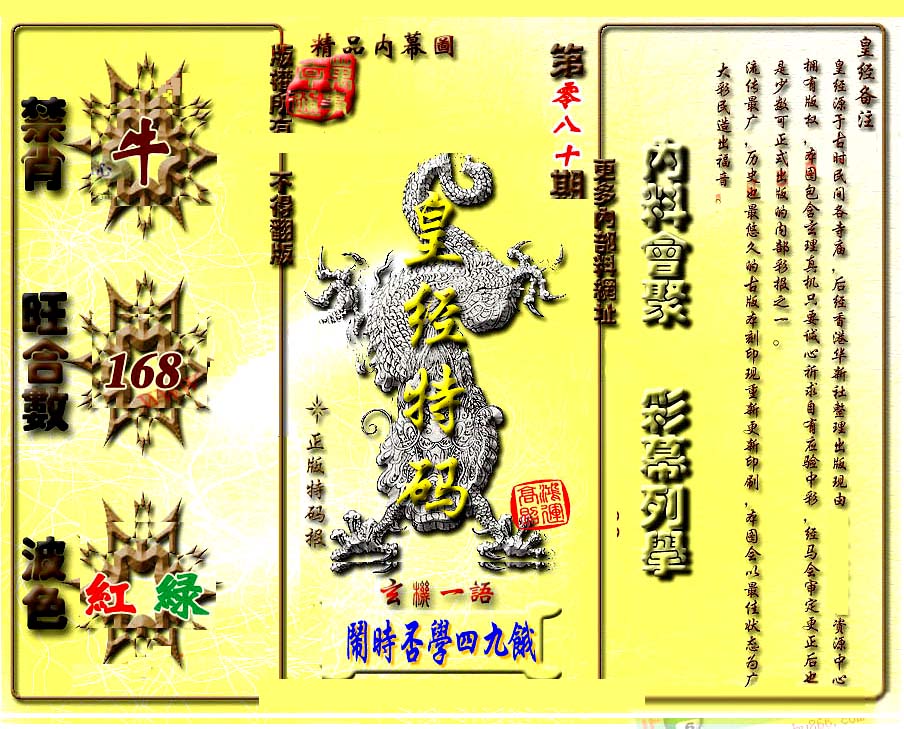 皇经备注
皇经源于古时民间各寺庙,后经香港华新社整理出版现由 资源中心
拥有版权,本图包含玄理真机只要诚心祈求自有应验中彩,经马会审定更正后也
是少数可正式出版的内部彩报之一。
流传最广,历史也最悠久的古版本刻印现重新更新印刷,本图会以最佳状态为广
大彩民造出福音
內料會聚 彩幕列舉
更多內部料網址
第零八十期
精品内幕圖
版權所有 不得翻版
皇经特码
正版特码报
鴻運
高照
玄機一語
鬧時否學四九餓
禁肖
牛
旺合數
168
波色
紅 綠